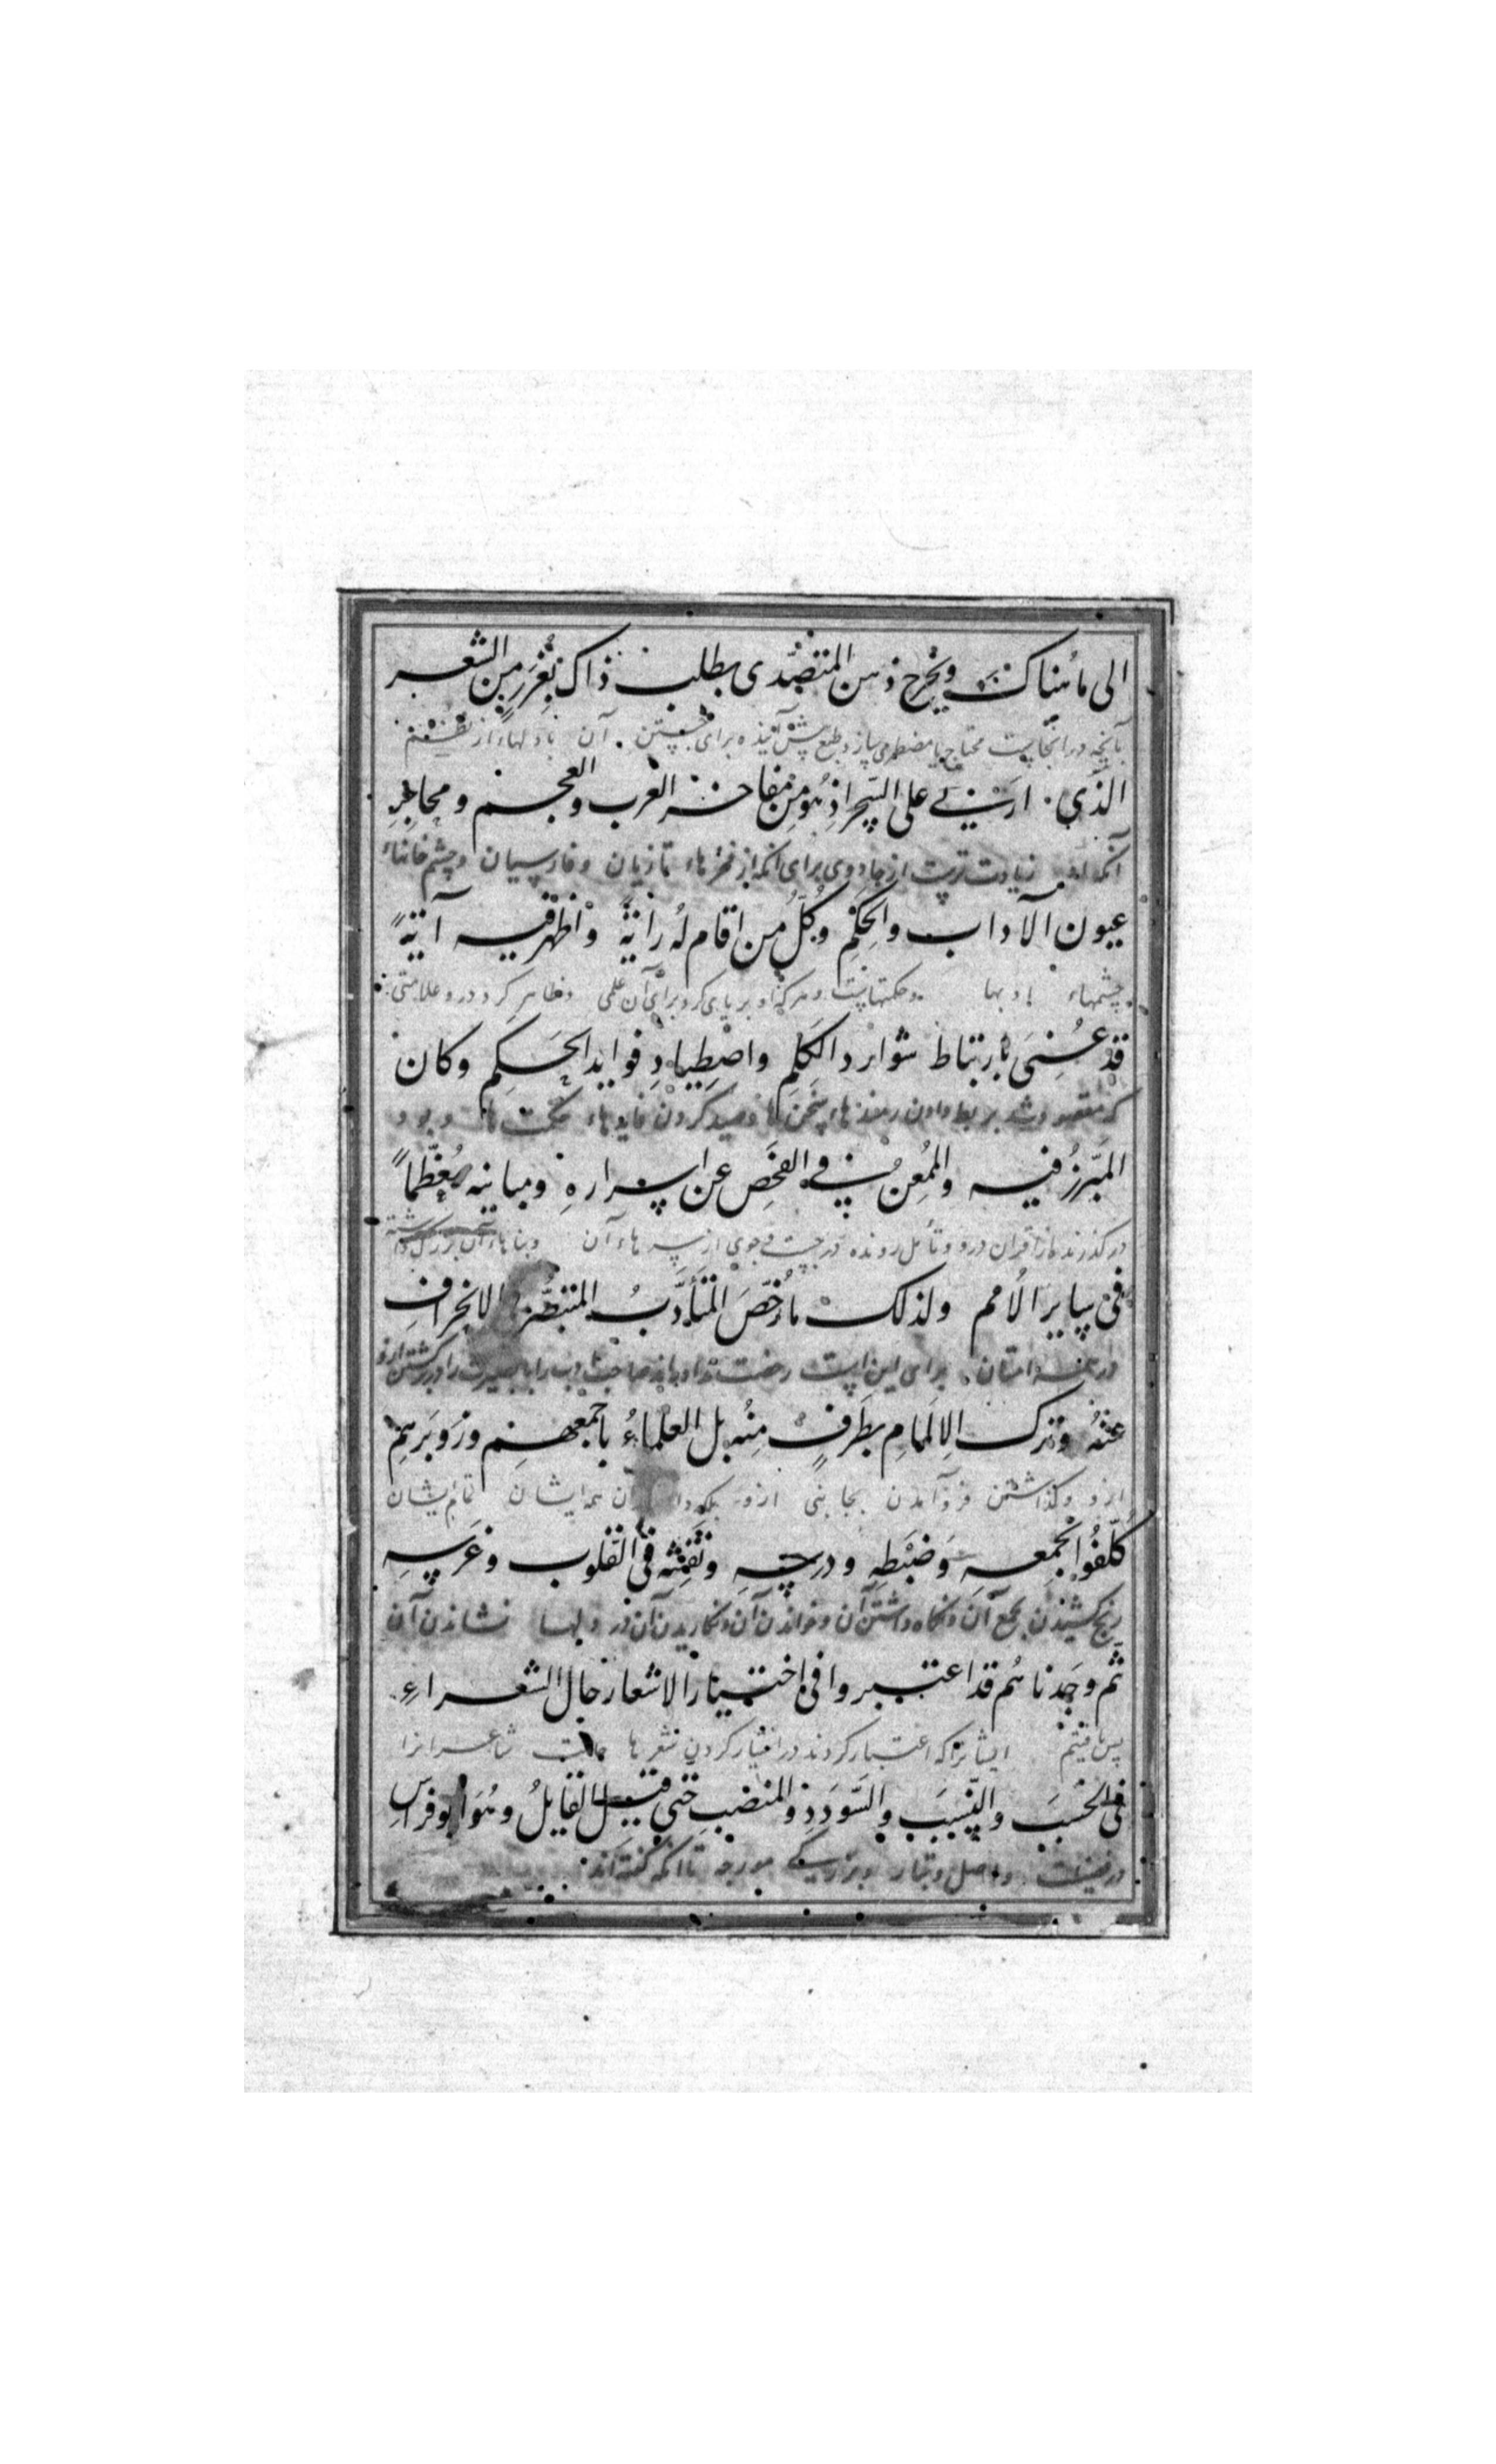 الى ما هُناك ويُحرِج ذهن المتصَدّى بطلب ذاك بغُرَرٍ من الشعر
بآنچه در انجاست محتاج يا مضطر مى سازد طبع پيش آينده براى جستن آن
الذي اربى على السِّحر اذ هُو مِن مفاخر العرب والعجم ومحاجِرِ
زيادت ترست از جادوى براى انكه از فخرهاء تازيان وفارسيان وچشم خانهاء
عيون الآداب والحِكَمِ وكُلُّ من اقام لهُ رايةً واظهر فيه آيةً
چشمهاء ادبها وحكمتهاست وهر كه او بر پاى كرد براى آن علمى وظاهر كرد درو علامتى
قد عُنِىَ بارتباط شوارد الكَلِمِ واصْطِيادِ فوايد الحِكَمِ وكان
كه مقصود شد بربط دادن رمنده هاء سخن ها وصيد كردن فايدهاء حكمت ها وبود
المبَرِّزُ فيه والمُمعِنُ في الفَحْصِ عن اسرارهِ ومبانيه مُعَظَّماً
در كذرنده از اقران درو وتأمل رونده در جست وجوى از سرهاء آن وبناهاء آن بزرك داشته
فى سايرَ الاُمم ولذلك ما رُخِّصَ المتأدِّبُ المتبَصِّرُ الانحراف
امتان براى اين است رخصت نداده‌اند
عنهُ وترك الالمامِ بطَرَفٍ مِنْه بل العلماءُ باجمعهم وزَوبَرِهِم
ازو وكذاشتن فرو آمدن بجانبى ازو بلكه همه ايشان تمام ايشان
كُلِّفُوا بجمعه وَضبْطِهِ ودرسهِ ونَقشِه فى القلوب وغَرسِهِ
رنج كشيدن بجمع آن ونكاه داشتن آن وخواندن آن ونكاريدن آن در دلها نشاندن آن
ثم وجَدناهُم قد اعتبروا فى اختيار الاشعار حال الشعراءِ
پس يافتيم ايشانرا كه اعتبار كردند در اختيار كردن شعرها حالت شاعرانرا
فى الحَسَب والنسَب والسَّودَدِ والمنصبِ حتى قيل القايلُ وهُوَ ابو فراس
واصل وتبار وبزركى ومرتبه تا انكه كفته‌اند